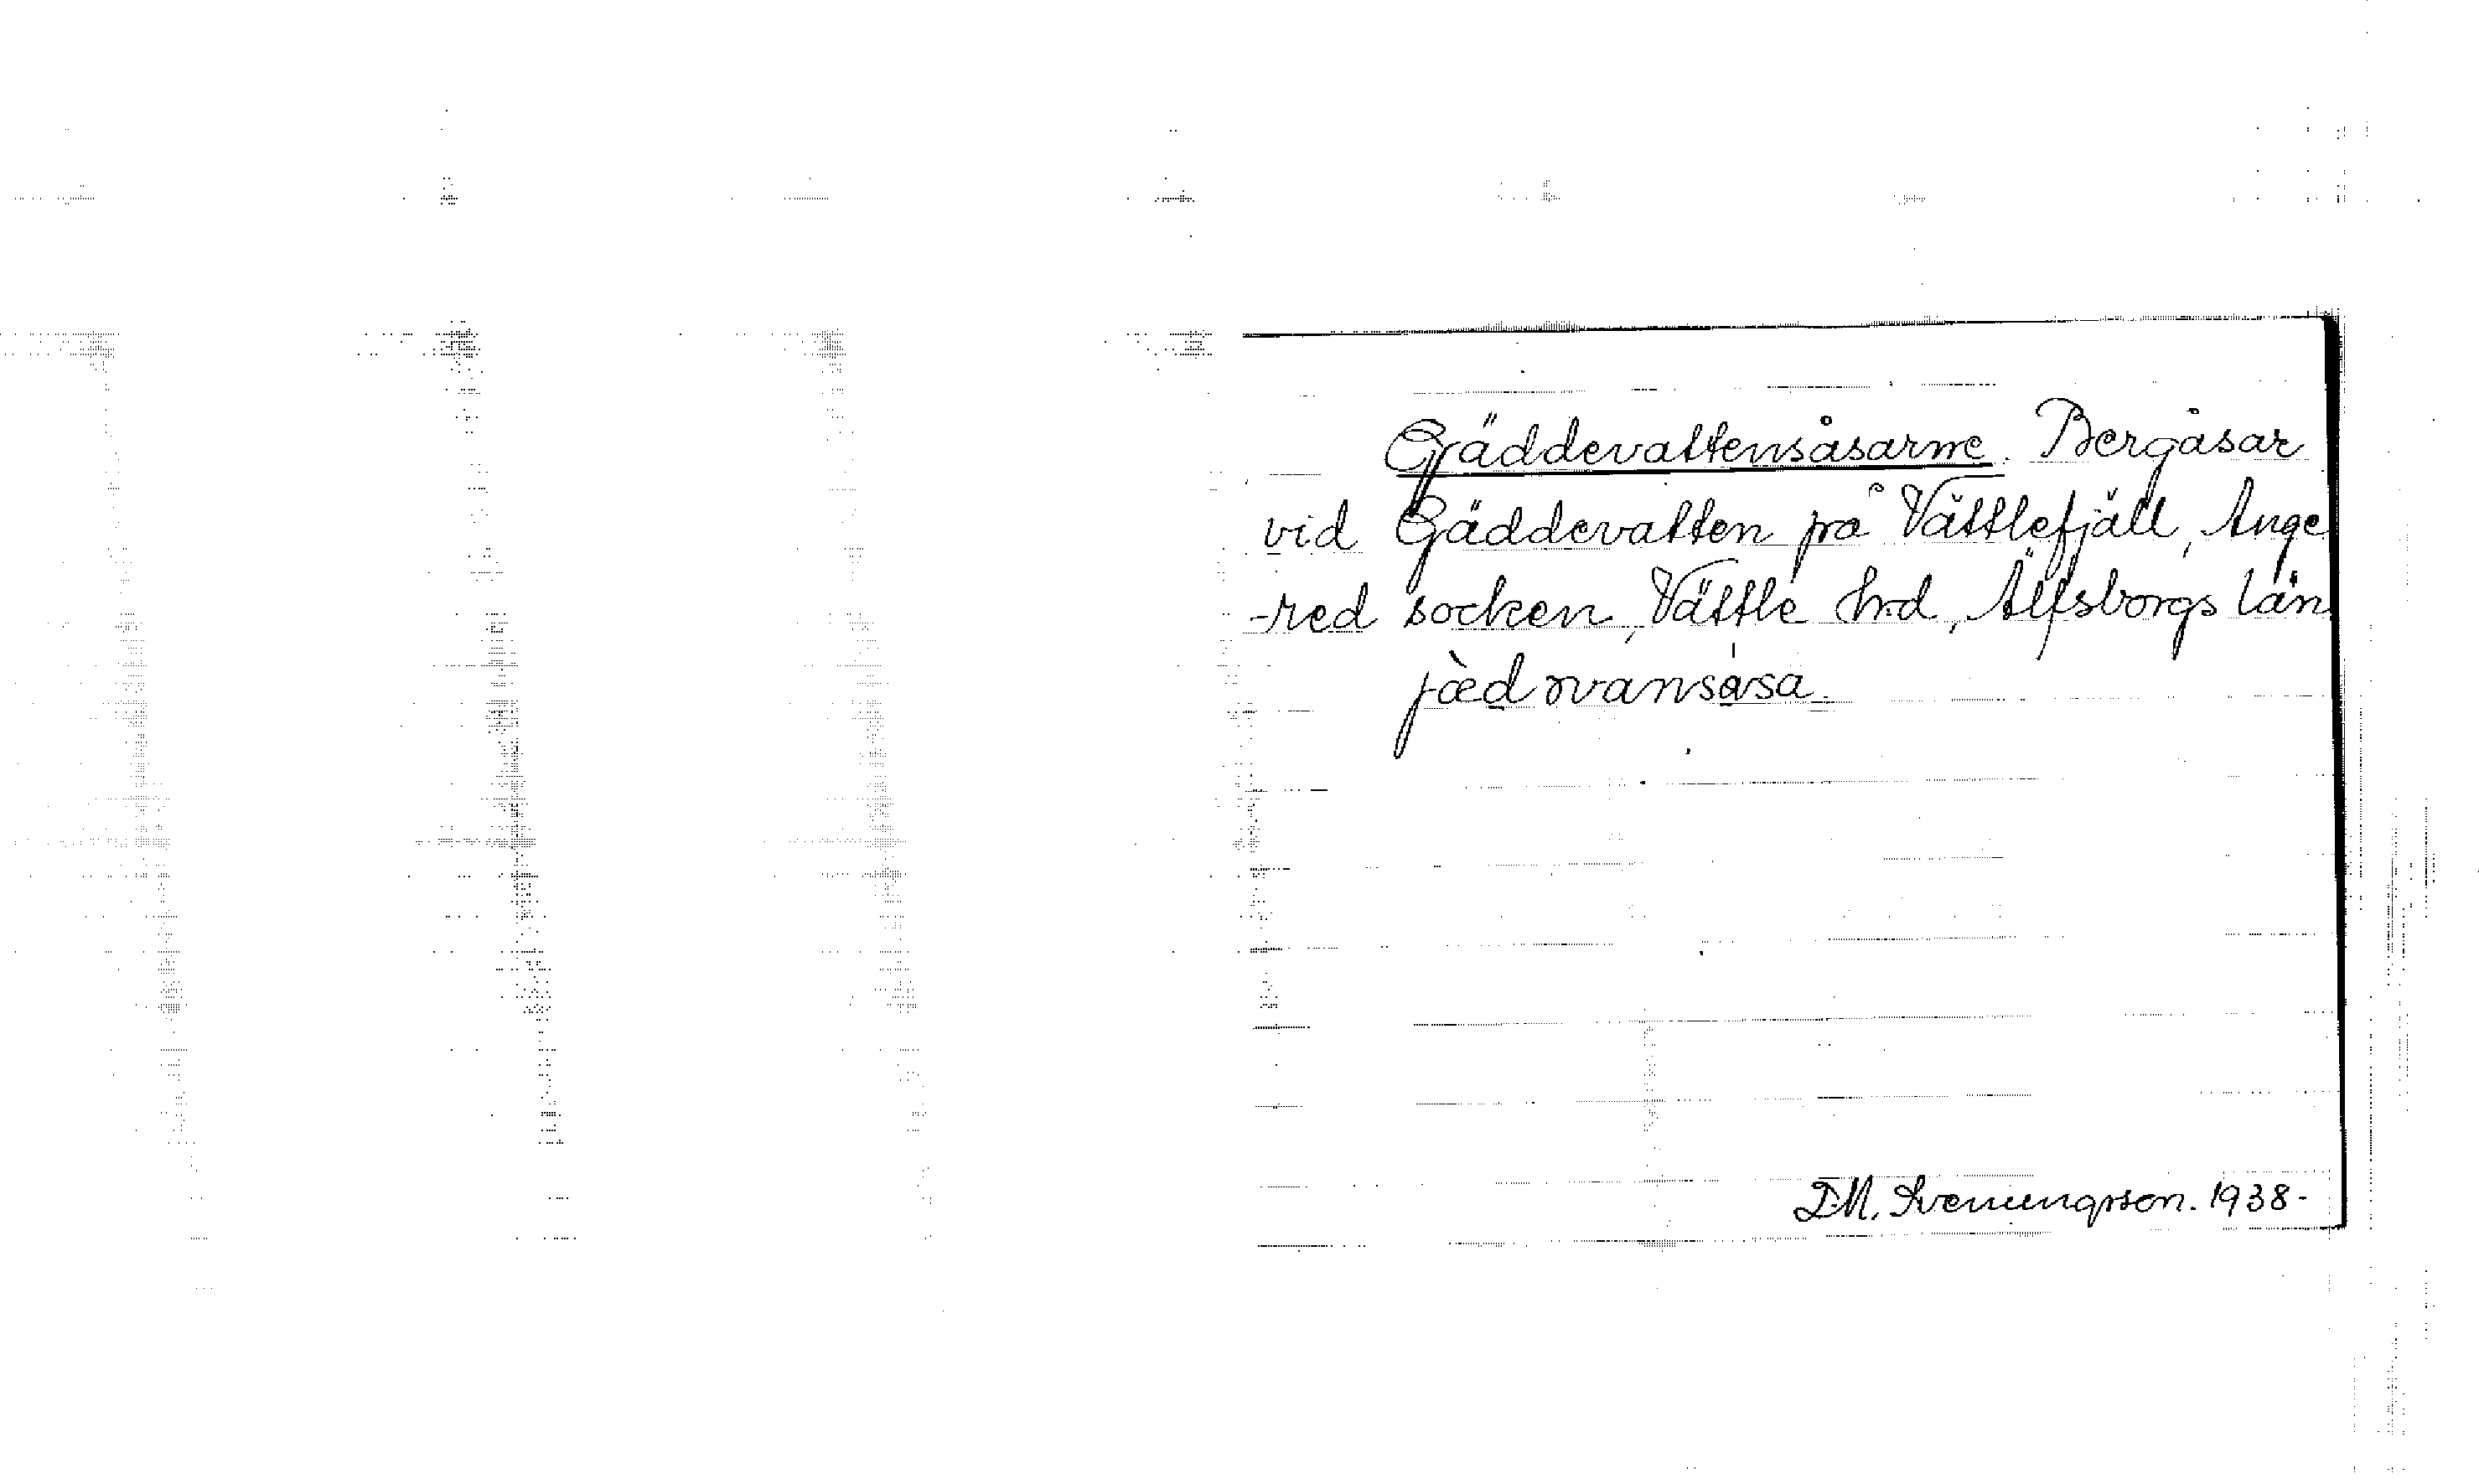 Gäddevattensåsarne. Bergåsar
vid Gäddevatten på Vättlefjäll, Ange
-red socken, Vättle hrd, Älfsborgs län.
jæ̀dɔvansåsa.
D.M. Svenungsson. 1938-